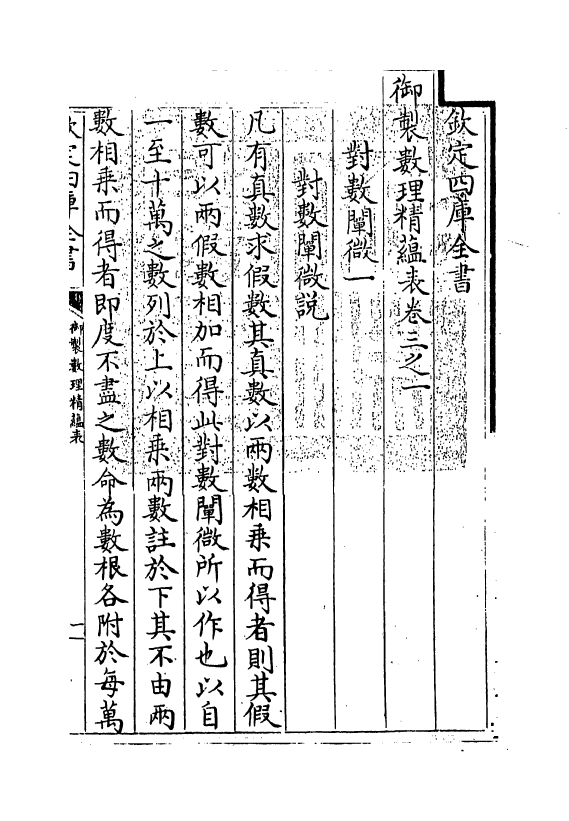 欽定四庫全書
御製數理精蘊表卷三之一
對數闡微一
對數闡微說
凡有真數求假數其真數以兩數相乗而得者則其假
數可以兩假數相加而得此對數闡微所以作也以自
一至十萬之數列於上以相乗兩數註於下其不由兩
數相乗而得者即度不盡之數命為數根各附於每萬
欽定四庫全書
御製數理精蘊表
一